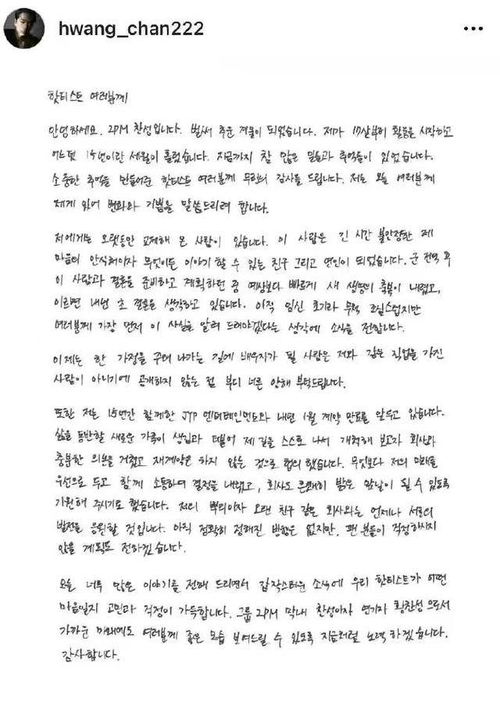 hwang_chan222
핫티스트 여러분께
안녕하세요. 2PM 찬성입니다. 벌써 추운 계절이 되었습니다. 제가 17살부터 활동을 시작하고
어느덧 15년이란 세월이 흘렀습니다. 지금까지 참 많은 일들과 추억들이 있었습니다.
소중한 추억을 만들어준 핫티스트 여러분께 무한의 감사를 드립니다. 저는 오늘 여러분께
제게 있어 변화와 기쁨을 말씀드리려 합니다.
저에게는 오랫동안 교제해 온 사람이 있습니다. 이 사람은 긴 시간 불안정한 제
마음의 안식처이자 무엇이든 이야기 할 수 있는 친구 그리고 연인이 되었습니다. 군 전역 후
이 사람과 결혼을 준비하고 계획하던 중 예상보다 빠르게 새 생명의 축복이 내렸고,
이르면 내년 초 결혼을 생각하고 있습니다. 아직 임신 초기라 무척 조심스럽지만
여러분께 가장 먼저 이 사실을 알려 드려야겠다는 생각에 소식을 전합니다.
이제는 한 가정을 꾸려 나가는 길에 배우자가 될 사람은 저와 같은 직업을 가진
사람이 아니기에 공개하지 않는 점 부디 너른 양해 부탁드립니다.
또한 저는 15년간 함께한 JYP 엔터테인먼트와 내년 1월 계약 만료를 앞두고 있습니다.
삶을 동반할 새로운 가족이 생김과 더불어 제 길을 스스로 나서 개척해 보고자 회사와
충분한 의논을 거쳤고 재계약은 하지 않는 것으로 협의 했습니다. 무엇보다 저의 미래를
우선으로 두고 함께 소통하며 결정을 내렸고, 회사도 은혜히 밝은 앞날이 될 수 있도록
기원해 주시기로 했습니다. 저의 뿌리이자 오랜 친구 같은 회사와는 언제나 서로의
발전을 응원할 것입니다. 아직 정확히 정해진 방향은 없지만, 팬 분들이 걱정하시지
않을 계획도 전하겠습니다.
오늘 너무 많은 이야기를 전해 드리면서 갑작스러운 소식에 우리 핫티스트가 어떤
마음일지 고민과 걱정이 가득합니다. 그룹 2PM 막내 찬성이자 연기자 황찬성 으로서
가까운 미래에도 여러분께 좋은 모습 보여드릴 수 있도록 지금처럼 노력 하겠습니다.
감사합니다.